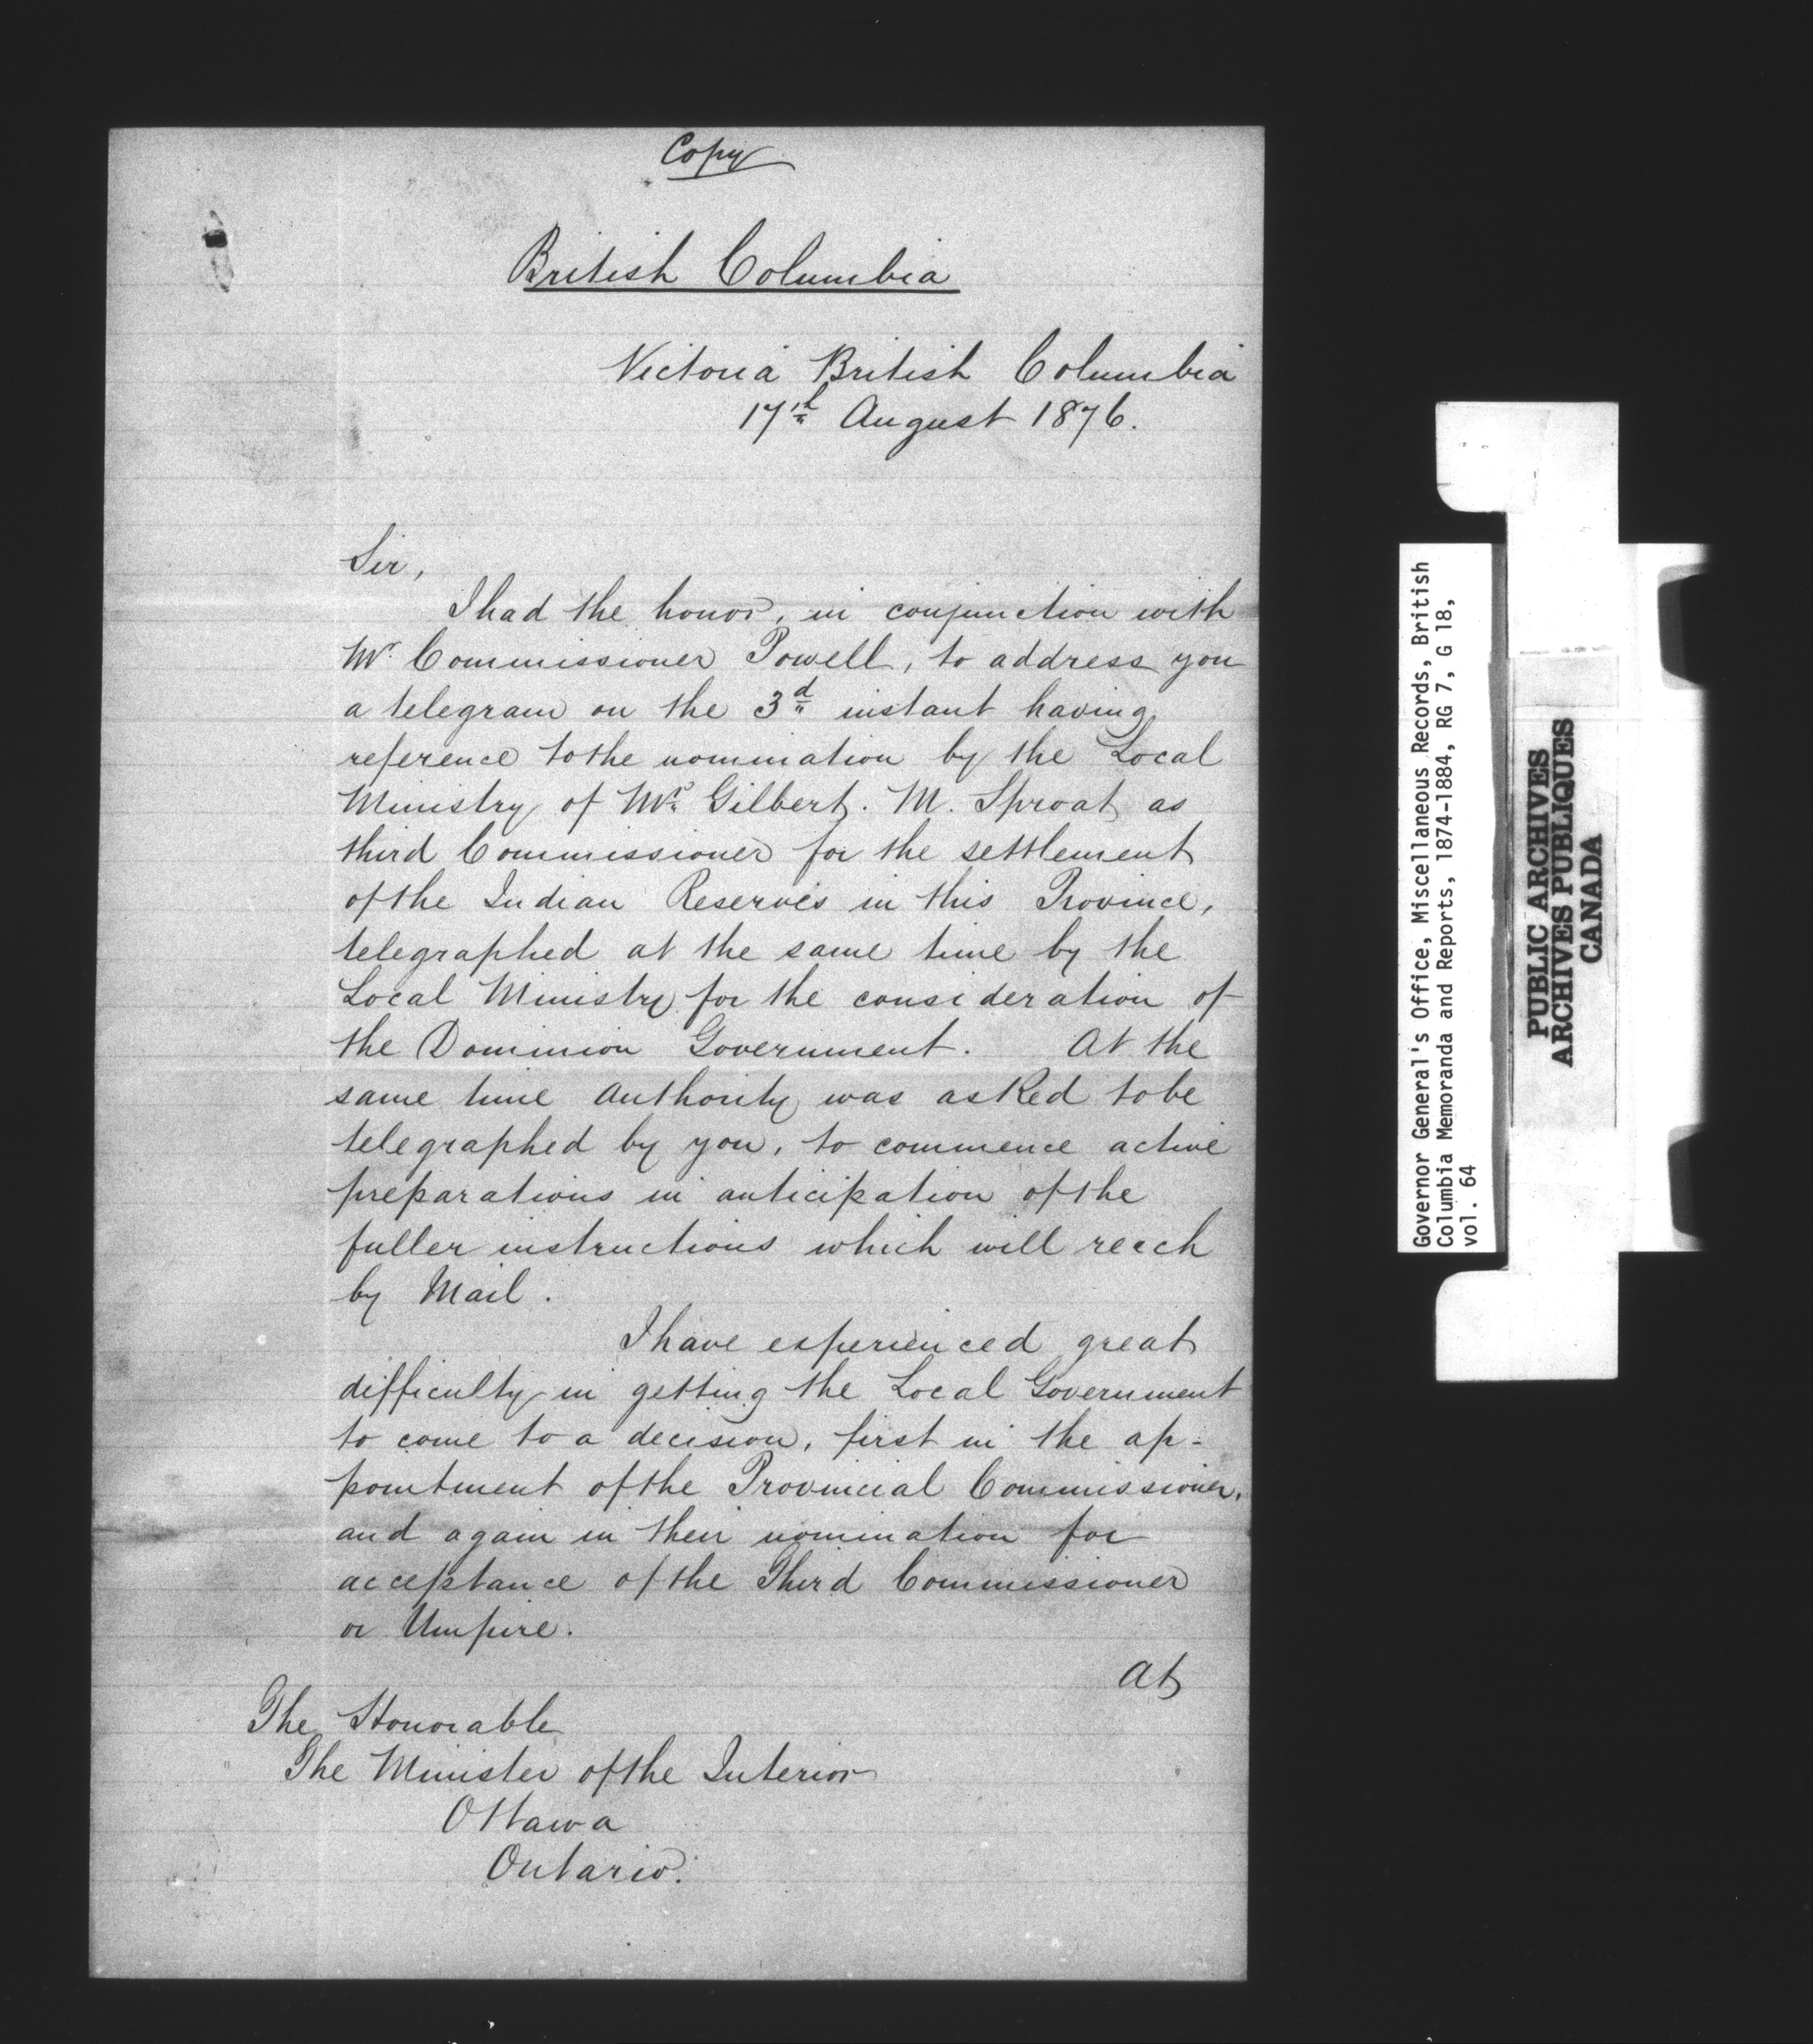 Copy
British Columbia
Victoria British Columbia
17th August 1876.
Sir,
I had the honor, in conjunction with
Mr. Commissioner Powell, to address you
a telegram on the 3d instant having
reference to the nomination by the Local
Ministry of Mr. Gilbert. M. Sproat as
third Commissioner for the settlement
of the Indian Reserves in this Province,
telegraphed at the same time by the
Local Ministry for the consideration of
the Dominion Government. At the
same time authority was asked to be
telegraphed by you, to commence active
preparations in anticipation of the
fuller instructions which will reach
by Mail.
I have experienced great
difficulty in getting the Local Government
to come to a decision, first in the ap-
pointment of the Provincial Commissioner,
and again in their nomination for
acceptance of the Third Commissioner
or Umpire.
At
The Honorable
The Minister of the Interior
Ottawa
Ontario.
Governor General's Office, Miscellaneous Records, British
Columbia Memoranda and Reports, 1874-1884, RG 7, G 18,
vol. 64
PUBLIC ARCHIVES
ARCHIVES PUBLIQUES
CANADA